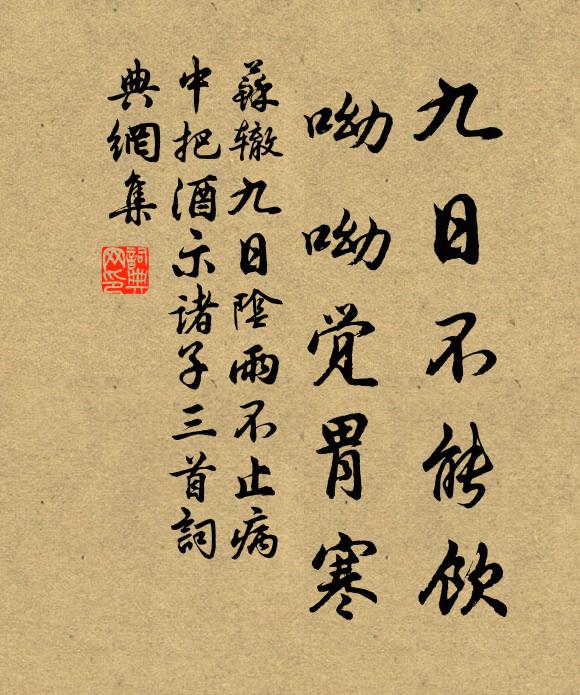 九日不能飲
呦呦觉胃寒
蘇辙九日陰雨不止病
中把酒示諸子三首詞
典網集
詞典网印